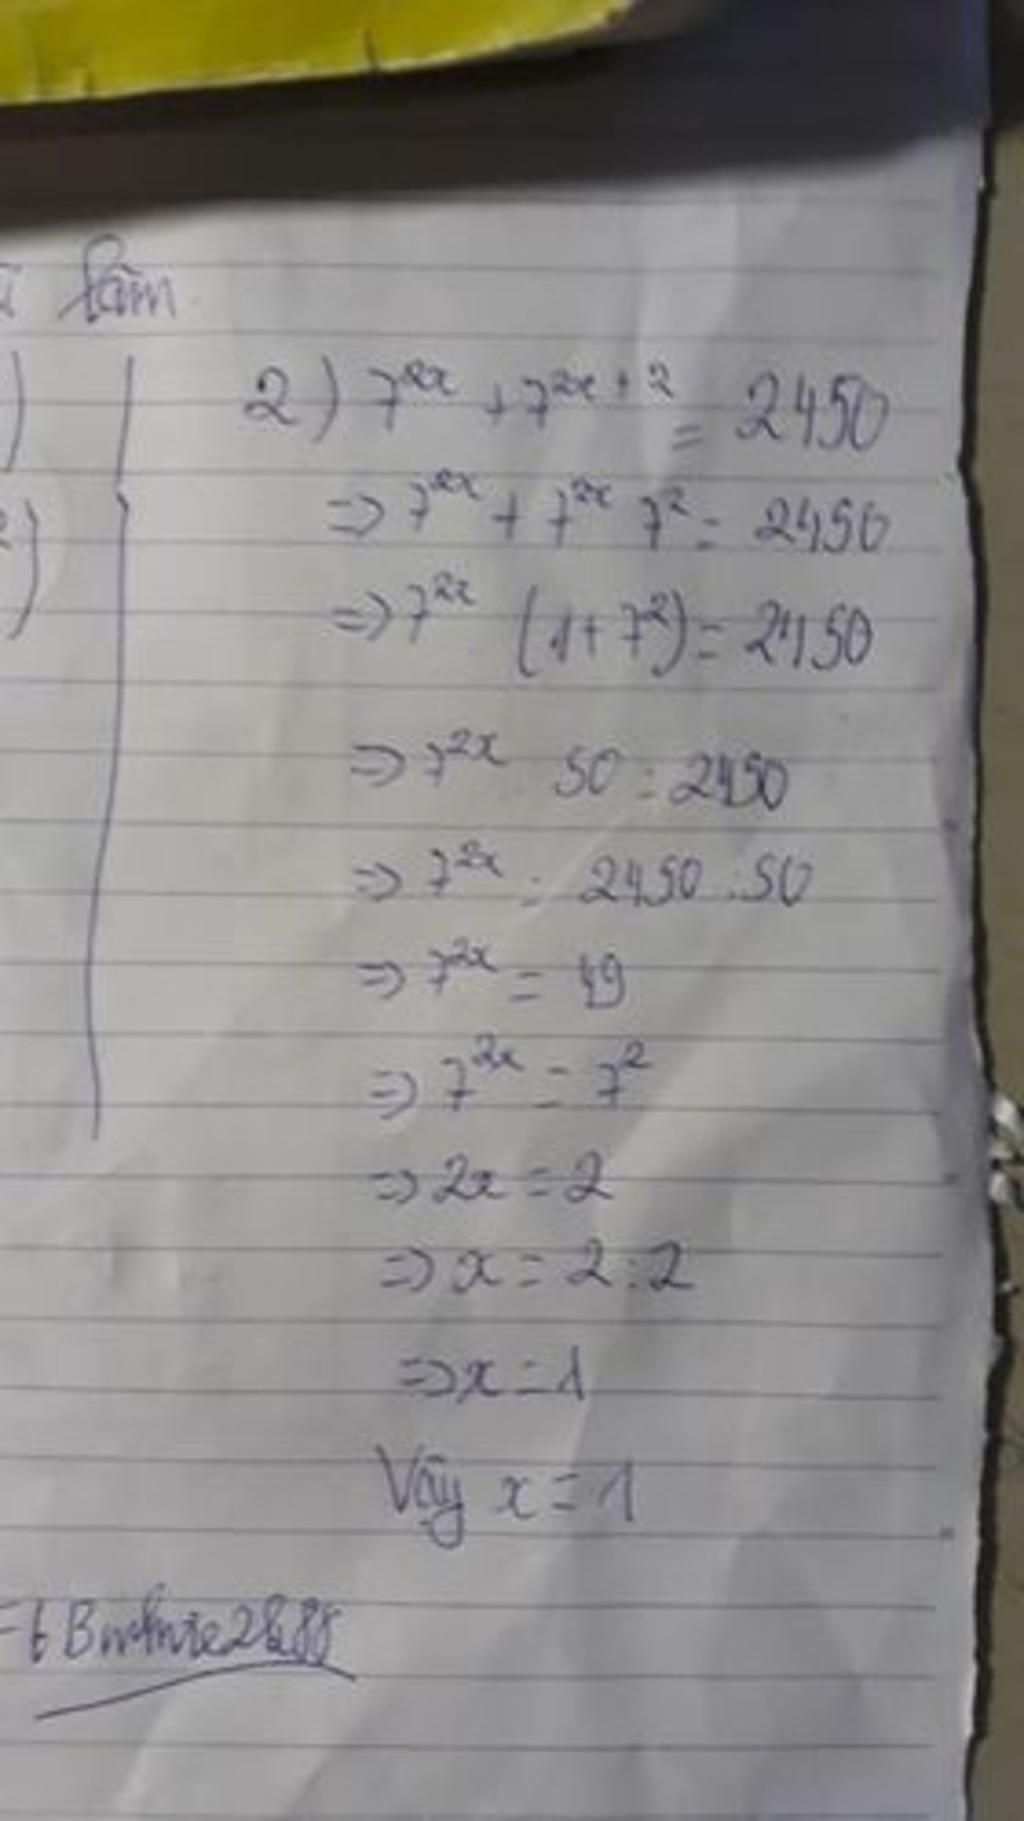 làm
)
2)
2) 7^{2x} + 7^{2x+2} = 2450
=> 7^{2x} + 7^{2x} 7^2 = 2450
=> 7^{2x} (1+7^2) = 2450
=> 7^{2x} 50 = 2450
=> 7^{2x} = 2450 : 50
=> 7^{2x} = 49
=> 7^{2x} = 7^2
=> 2x = 2
=> x = 2 : 2
=> x = 1
Vậy x = 1